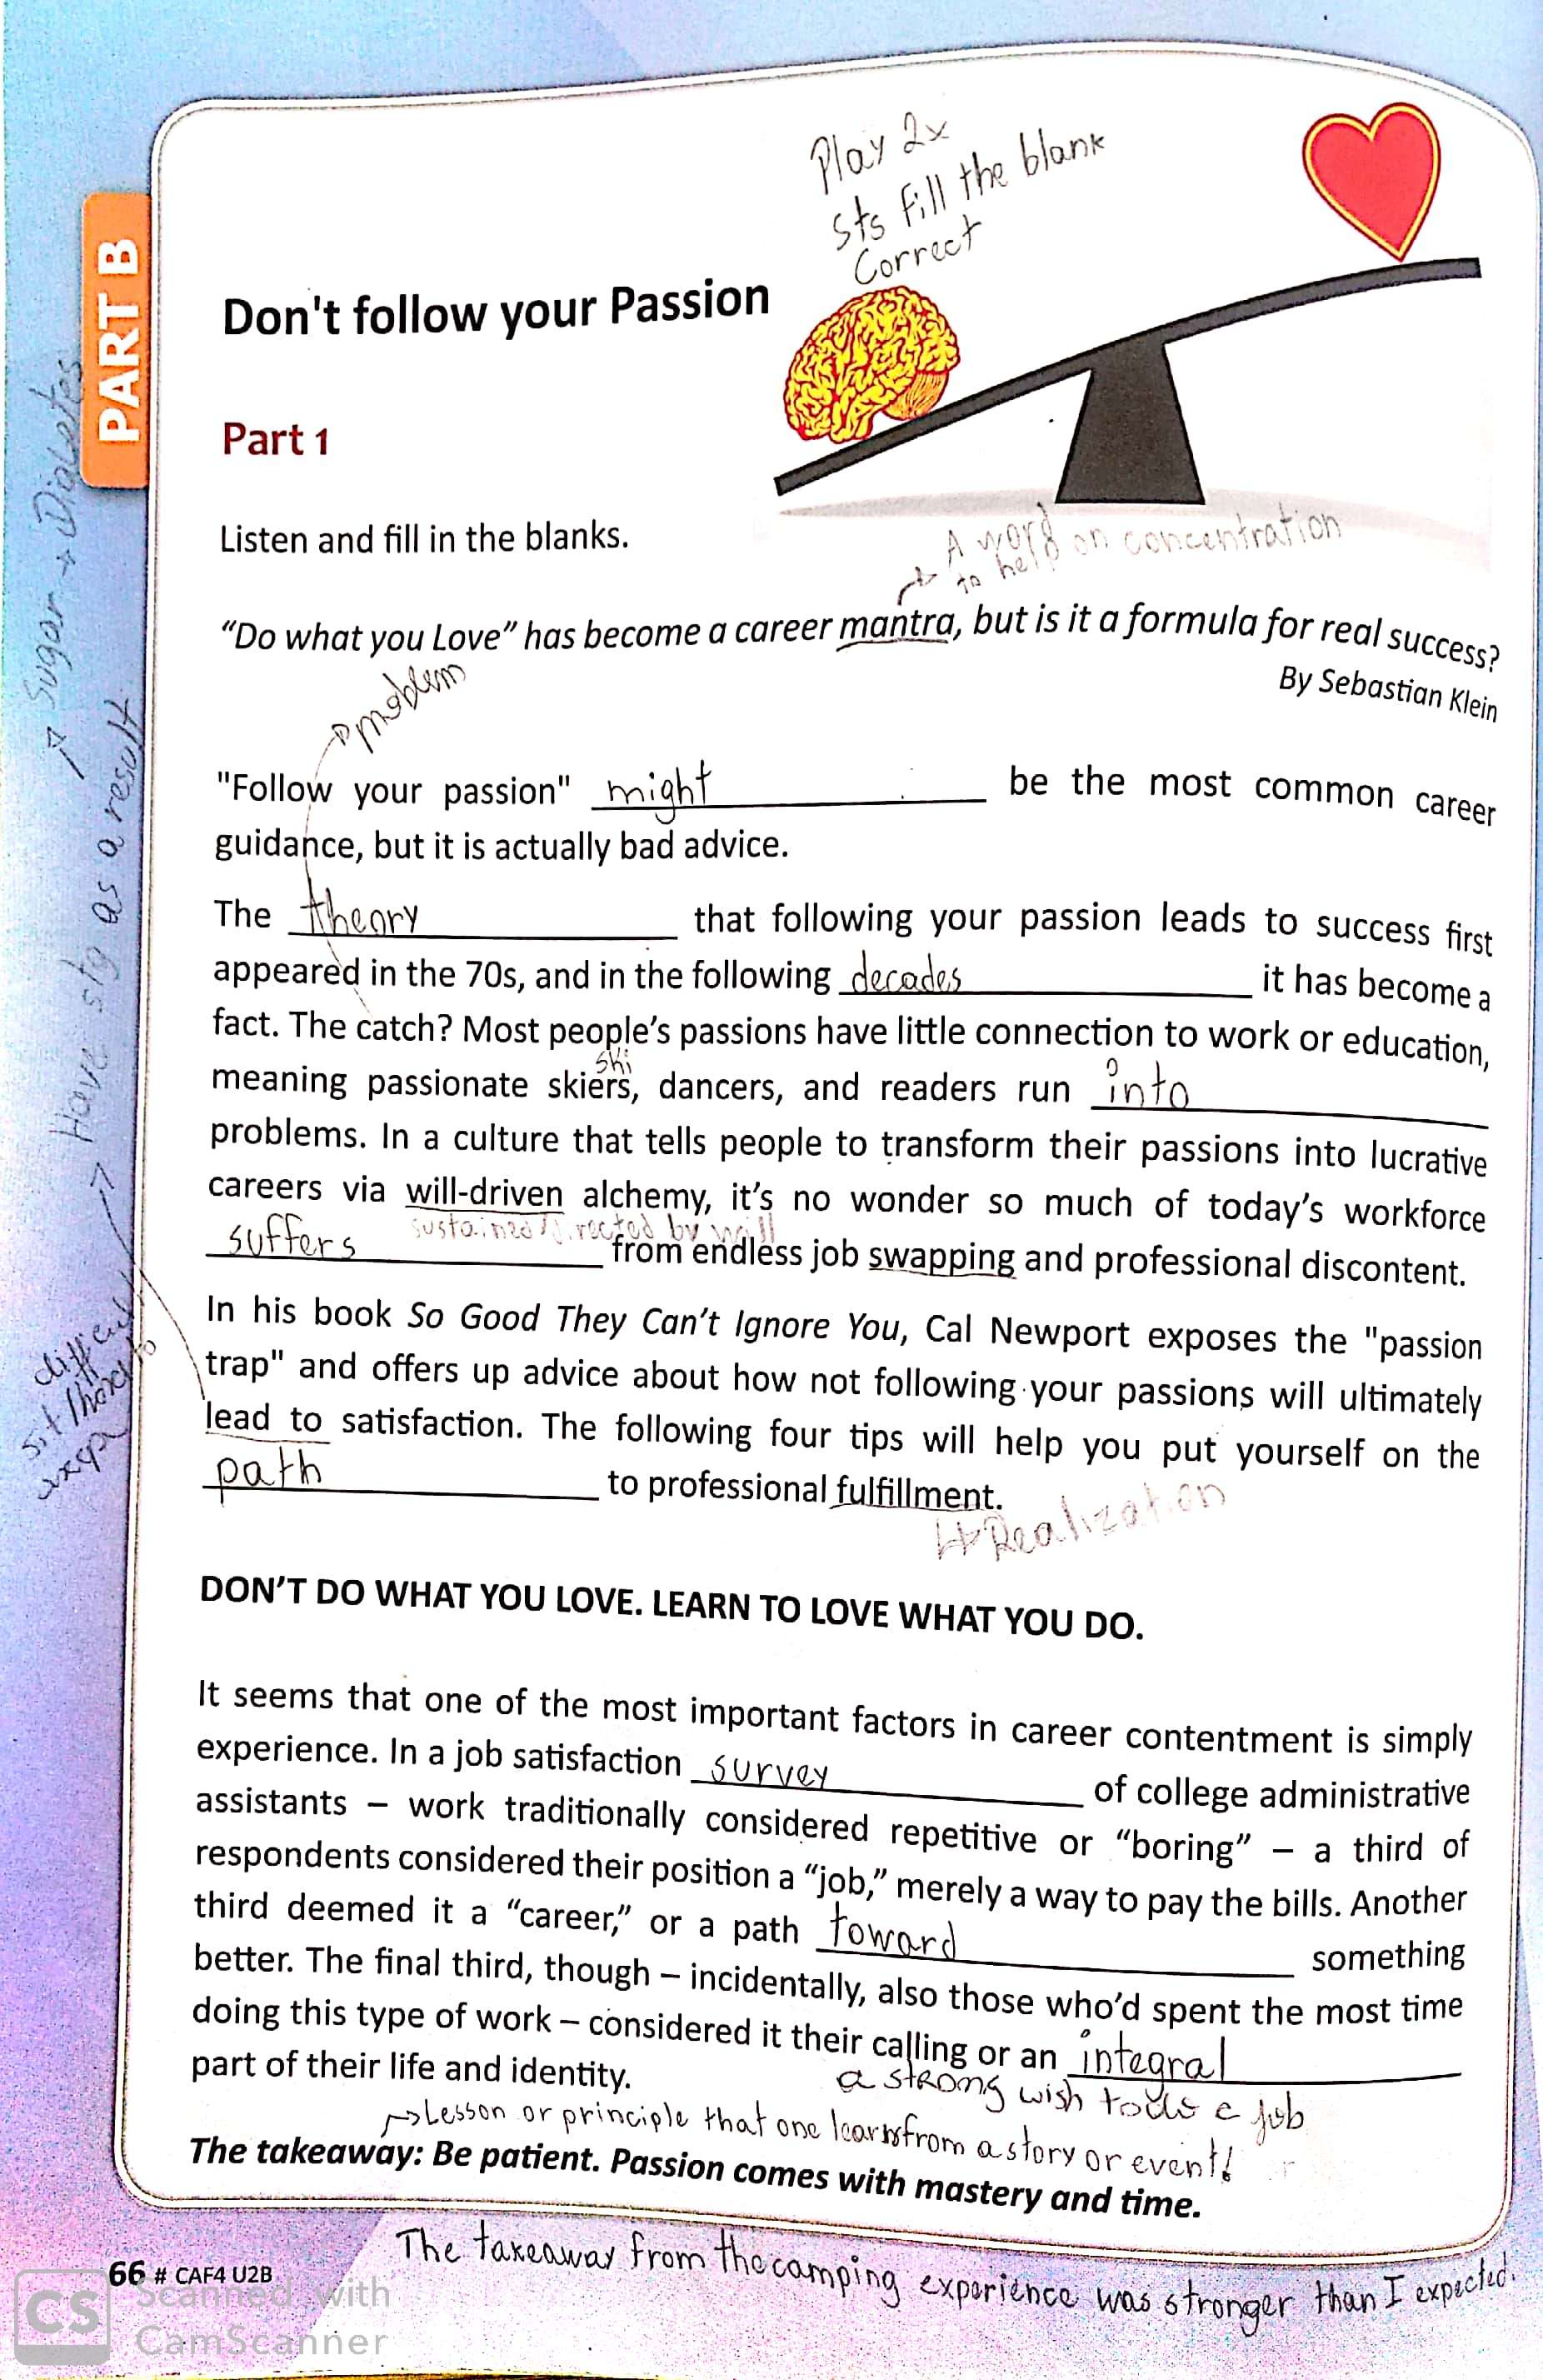 Play 2x
sts fill the blank
Correct
PART B
Don't follow your Passion
Part 1
Listen and fill in the blanks.
A word on concentration
to help
"Do what you Love" has become a career mantra, but is it a formula for real success?
By Sebastian Klein
problem
"Follow your passion" might be the most common career
guidance, but it is actually bad advice.
The theory that following your passion leads to success first
appeared in the 70s, and in the following decades it has become a
fact. The catch? Most people's passions have little connection to work or education,
ski
meaning passionate skiers, dancers, and readers run into
problems. In a culture that tells people to transform their passions into lucrative
careers via will-driven alchemy, it's no wonder so much of today's workforce
sustained/directed by will
suffers from endless job swapping and professional discontent.
In his book So Good They Can't Ignore You, Cal Newport exposes the "passion
trap" and offers up advice about how not following your passions will ultimately
lead to satisfaction. The following four tips will help you put yourself on the
path to professional fulfillment.
Realization
DON'T DO WHAT YOU LOVE. LEARN TO LOVE WHAT YOU DO.
It seems that one of the most important factors in career contentment is simply
experience. In a job satisfaction survey of college administrative
assistants – work traditionally considered repetitive or "boring" – a third of
respondents considered their position a "job," merely a way to pay the bills. Another
third deemed it a "career," or a path toward something
better. The final third, though – incidentally, also those who'd spent the most time
doing this type of work – considered it their calling or an integral
part of their life and identity.
a strong wish to do a job
Lesson or principle that one learns from a story or event!
The takeaway: Be patient. Passion comes with mastery and time.
The takeaway from the camping experience was stronger than I expected.
66 # CAF4 U2B
Have stg as a result
Sugar → Diabetes
CS
Scanned with
CamScanner